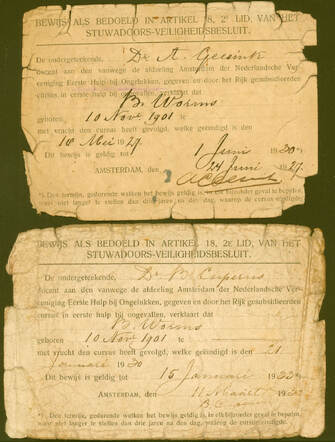 BEWIJS ALS BEDOELD IN ARTIKEL 18, 2e LID, VAN HET
STUWADOORS-VEILIGHEIDSBESLUIT.
De ondergeteekende, Dr A. Geesink
docent aan den vanwege de afdeeling Amsterdam der Nederlandsche Ver-
eeniging Eerste Hulp bij Ongelukken, gegeven en door het Rijk gesubsidieerden
cursus in eerste hulp bij ongevallen, verklaart dat
B. Worms
geboren 10 Nov. 1901
met vrucht den cursus heeft gevolgd, welke geëindigd is den
10 Mei 1927.
Dit bewijs is geldig tot 1 Juni 1930
AMSTERDAM, den 24 Juni 1927.
*) Den termijn, gedurende welken het bewijs geldig is, in elk bijzonder geval te bepalen,
mits niet langer te stellen dan drie jaren na den dag, waarop de cursus eindigde.
BEWIJS ALS BEDOELD IN ARTIKEL 18, 2e LID, VAN HET
STUWADOORS-VEILIGHEIDSBESLUIT.
De ondergeteekende, Dr B. Cuperus
docent aan den vanwege de afdeeling Amsterdam der Nederlandsche Ver-
eeniging Eerste Hulp bij Ongelukken, gegeven en door het Rijk gesubsidieerden
cursus in eerste hulp bij ongevallen, verklaart dat
B. Worms
geboren 10 Nov. 1901
met vrucht den cursus heeft gevolgd, welke geëindigd is den 21
Januari 1930
Dit bewijs is geldig tot 15 Januari 1933
AMSTERDAM, den Maart
*) Den termijn, gedurende welken het bewijs geldig is, in elk bijzonder geval te bepalen,
mits niet langer te stellen dan drie jaren na den dag, waarop de cursus eindigde.